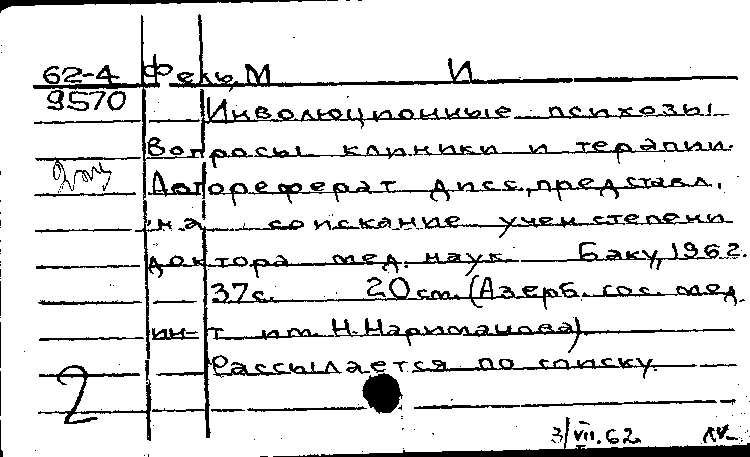 62-4 Фель, М И
9570 Инволюционные психозы
Вопросы клиники и терапии.
Автореферат дисс., представл.
на соискание учен. степени
доктора мед. наук. Баку, 1962.
37с. 20 см. (Азерб. гос. мед.
ин-т им. Н. Нариманова)
Рассылается по списку.
2
3/VII.62